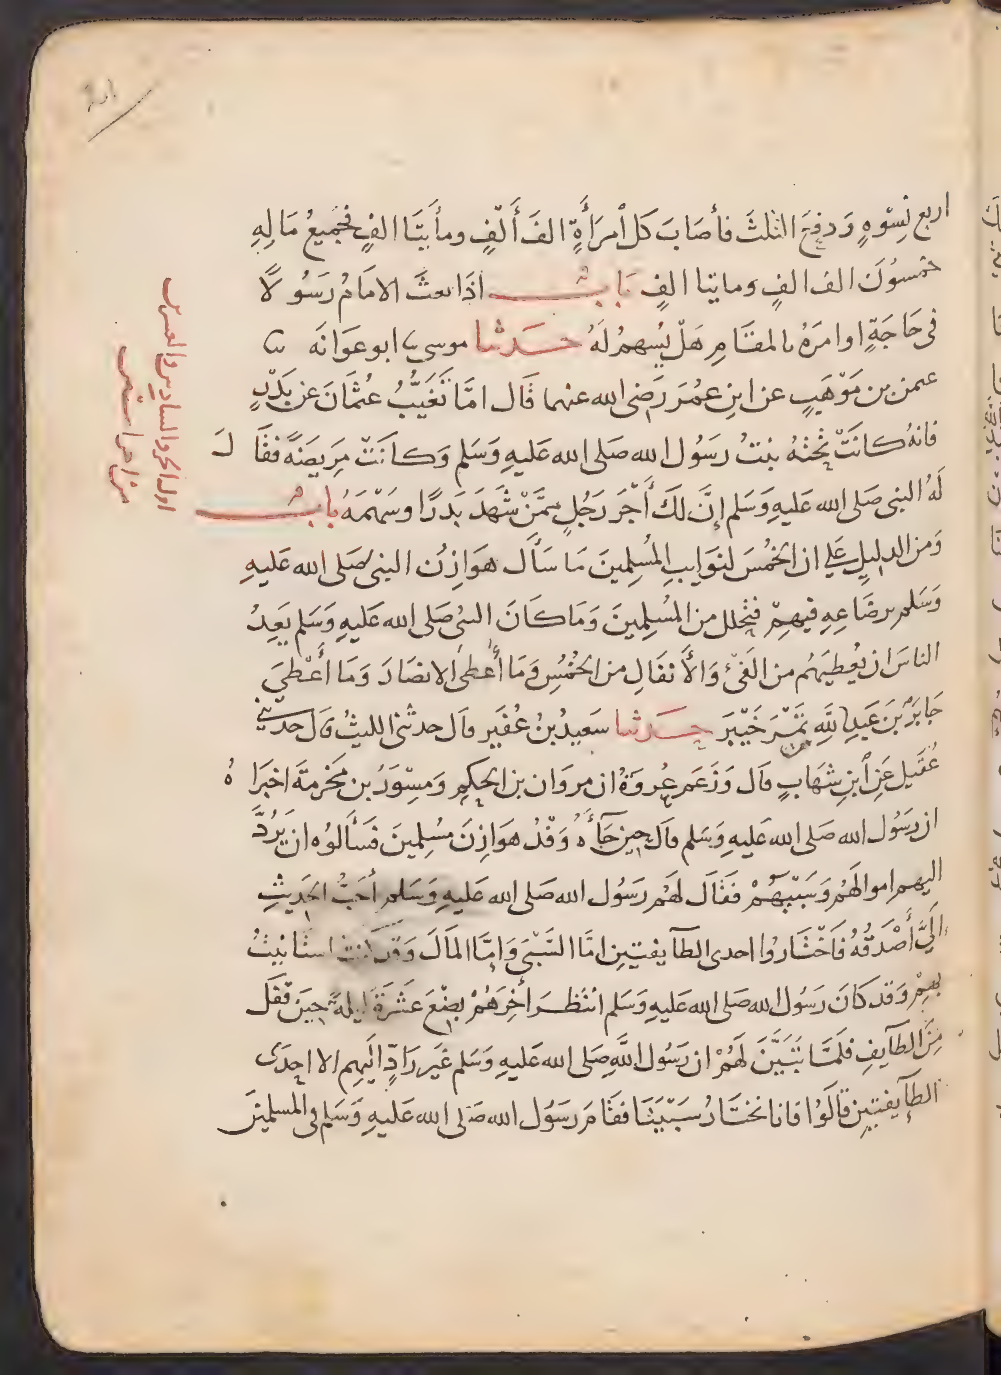 اربع نِسْوَةٍ وَدفِعَ الثلثَ فأصَابَ كَل اْمرَأَةٍ الفَ أَلْفٍ ومأيتَا الفٍ فجَميعُ مَالِهِ
خمسوُنَ الف الفٍ ومايتا الفٍ بَابٌ اذَا بعثَ الامَامُ رَسُولًا
فى حَاجَةٍ او امرَهُ بالمقَامِ هَلْ يُسهمُ لَهُ حَدثنا موسى نا ابو عوَانَه نا
عثمن بن مَوْهَبٍ عن ابنِ عمُرَ رَضى الله عنهما قَال امَّا تَغَيَّبُ عثُمَانَ عن بَدْرٍ
فانهُ كانَتْ تحْتَهُ بنتُ رَسُول الله صَلى الله عَليهِ وَسَلم وَكانَتْ مَرِيضَةً فقَالَ
لَهُ النبى صَلى الله عَليهِ وَسَلم إنَّ لكَ أَجْرَ رَجُلٍ ممَّنْ شَهَدَ بَدرًا وسَهْمَهُ بابٌ
وَمن الدليلِ عَلى ان الخمُسَ لنوَايبِ المُسِلمينَ مَا سَأَل هوَازِن النبى صَلى الله عَليهِ
وَسَلم برضَاعِهِ فيهِمْ فتحلل من المُسِلمينَ وَمَا كانَ النبى صَلى الله عَليهِ وَسَلم يَعِدُ
الناسَ ان يُعطيَهُم من الفَىْ وَالأَنفَالِ من الخمُسِ وَمَا أَعْطى الانصَارَ وَمَا أَعْطىَ
جَابرَ بنَ عَبدِ اللَّهِ تَمْرَ خَيْبَرَ حَدثنا سَعيدُ بنُ عُفَير قال حدثنى الليثُ قال حدثني
عُقَيل عَنِ ابنِ شهَابٍ قال وَزَعَم عُروَةُ ان مروَان بن الحكِمِ وَمِسْوَرَ بن مخَرمةَ اخبرَاهُ
ان رَسُول الله صَلى الله عَليهِ وَسَلم قال حِين جَآءَهُ وَفْدُ هوَازِنَ مسُلِمينَ فَسَأَلوُه ان يَرُدَّ
اليهم اموالهَمُ وَسَبْيَهُمْ فقَال لهَمُ رَسُول الله صَلى الله عَليهِ وَسَلم أحَبُّ الحَدِيثِ
الَيَّ أَصْدَقُهُ فَاخْتَارُوا احدى الطآيفتيِن امّا السَّبْىَ وَإمَّا المَالَ وَقد كنت استانيتُ
بهِمْ وَقد كانَ رَسُول الله صَلى الله عَليهِ وَسَلم انْتَظرَ آخِرَهُمْ بِضْعَ عَشْرَةَ ليلةً حينَ قفَل
مِنَ الطآيِف فلمَّا تَبَيَّنَ لهَمُ ان رَسُول اللَّهِ صَلى الله عَليهِ وَسَلم غَير رَادٍّ اليَهِم الا احِدَى
الطآيفتيِن قالَوُا فانا نختَارُ سَبْيَنَا فقَامَ رَسُول الله صَلى الله عَليهِ وَسَلم فى المسلمينَ
اول الجزء السادس والعشرين
من اجزاء